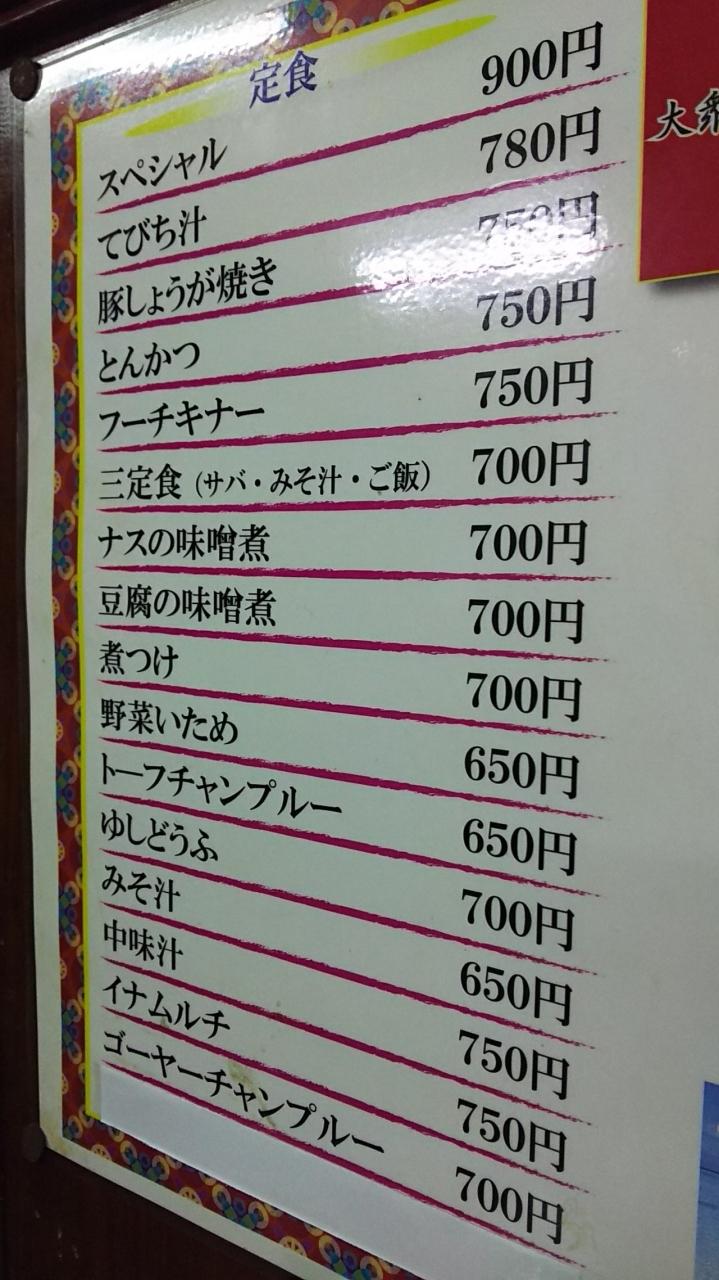 定食
スペシャル 900円
てびち汁 780円
豚しょうが焼き 750円
とんかつ 750円
フーチキナー 750円
三定食（サバ・みそ汁・ご飯） 700円
ナスの味噌煮 700円
豆腐の味噌煮 700円
煮つけ 700円
野菜いため 650円
トーフチャンプルー 650円
ゆしどうふ 700円
みそ汁 650円
中味汁 750円
イナムルチ 750円
ゴーヤーチャンプルー 700円
大衆